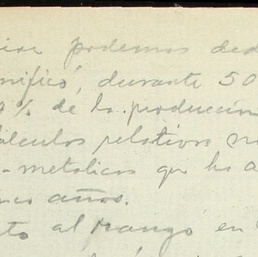 podemos ded
nificó, durante 50
% de la producción
álculos relativos
- metalicos que ha a
años.
to al rango en